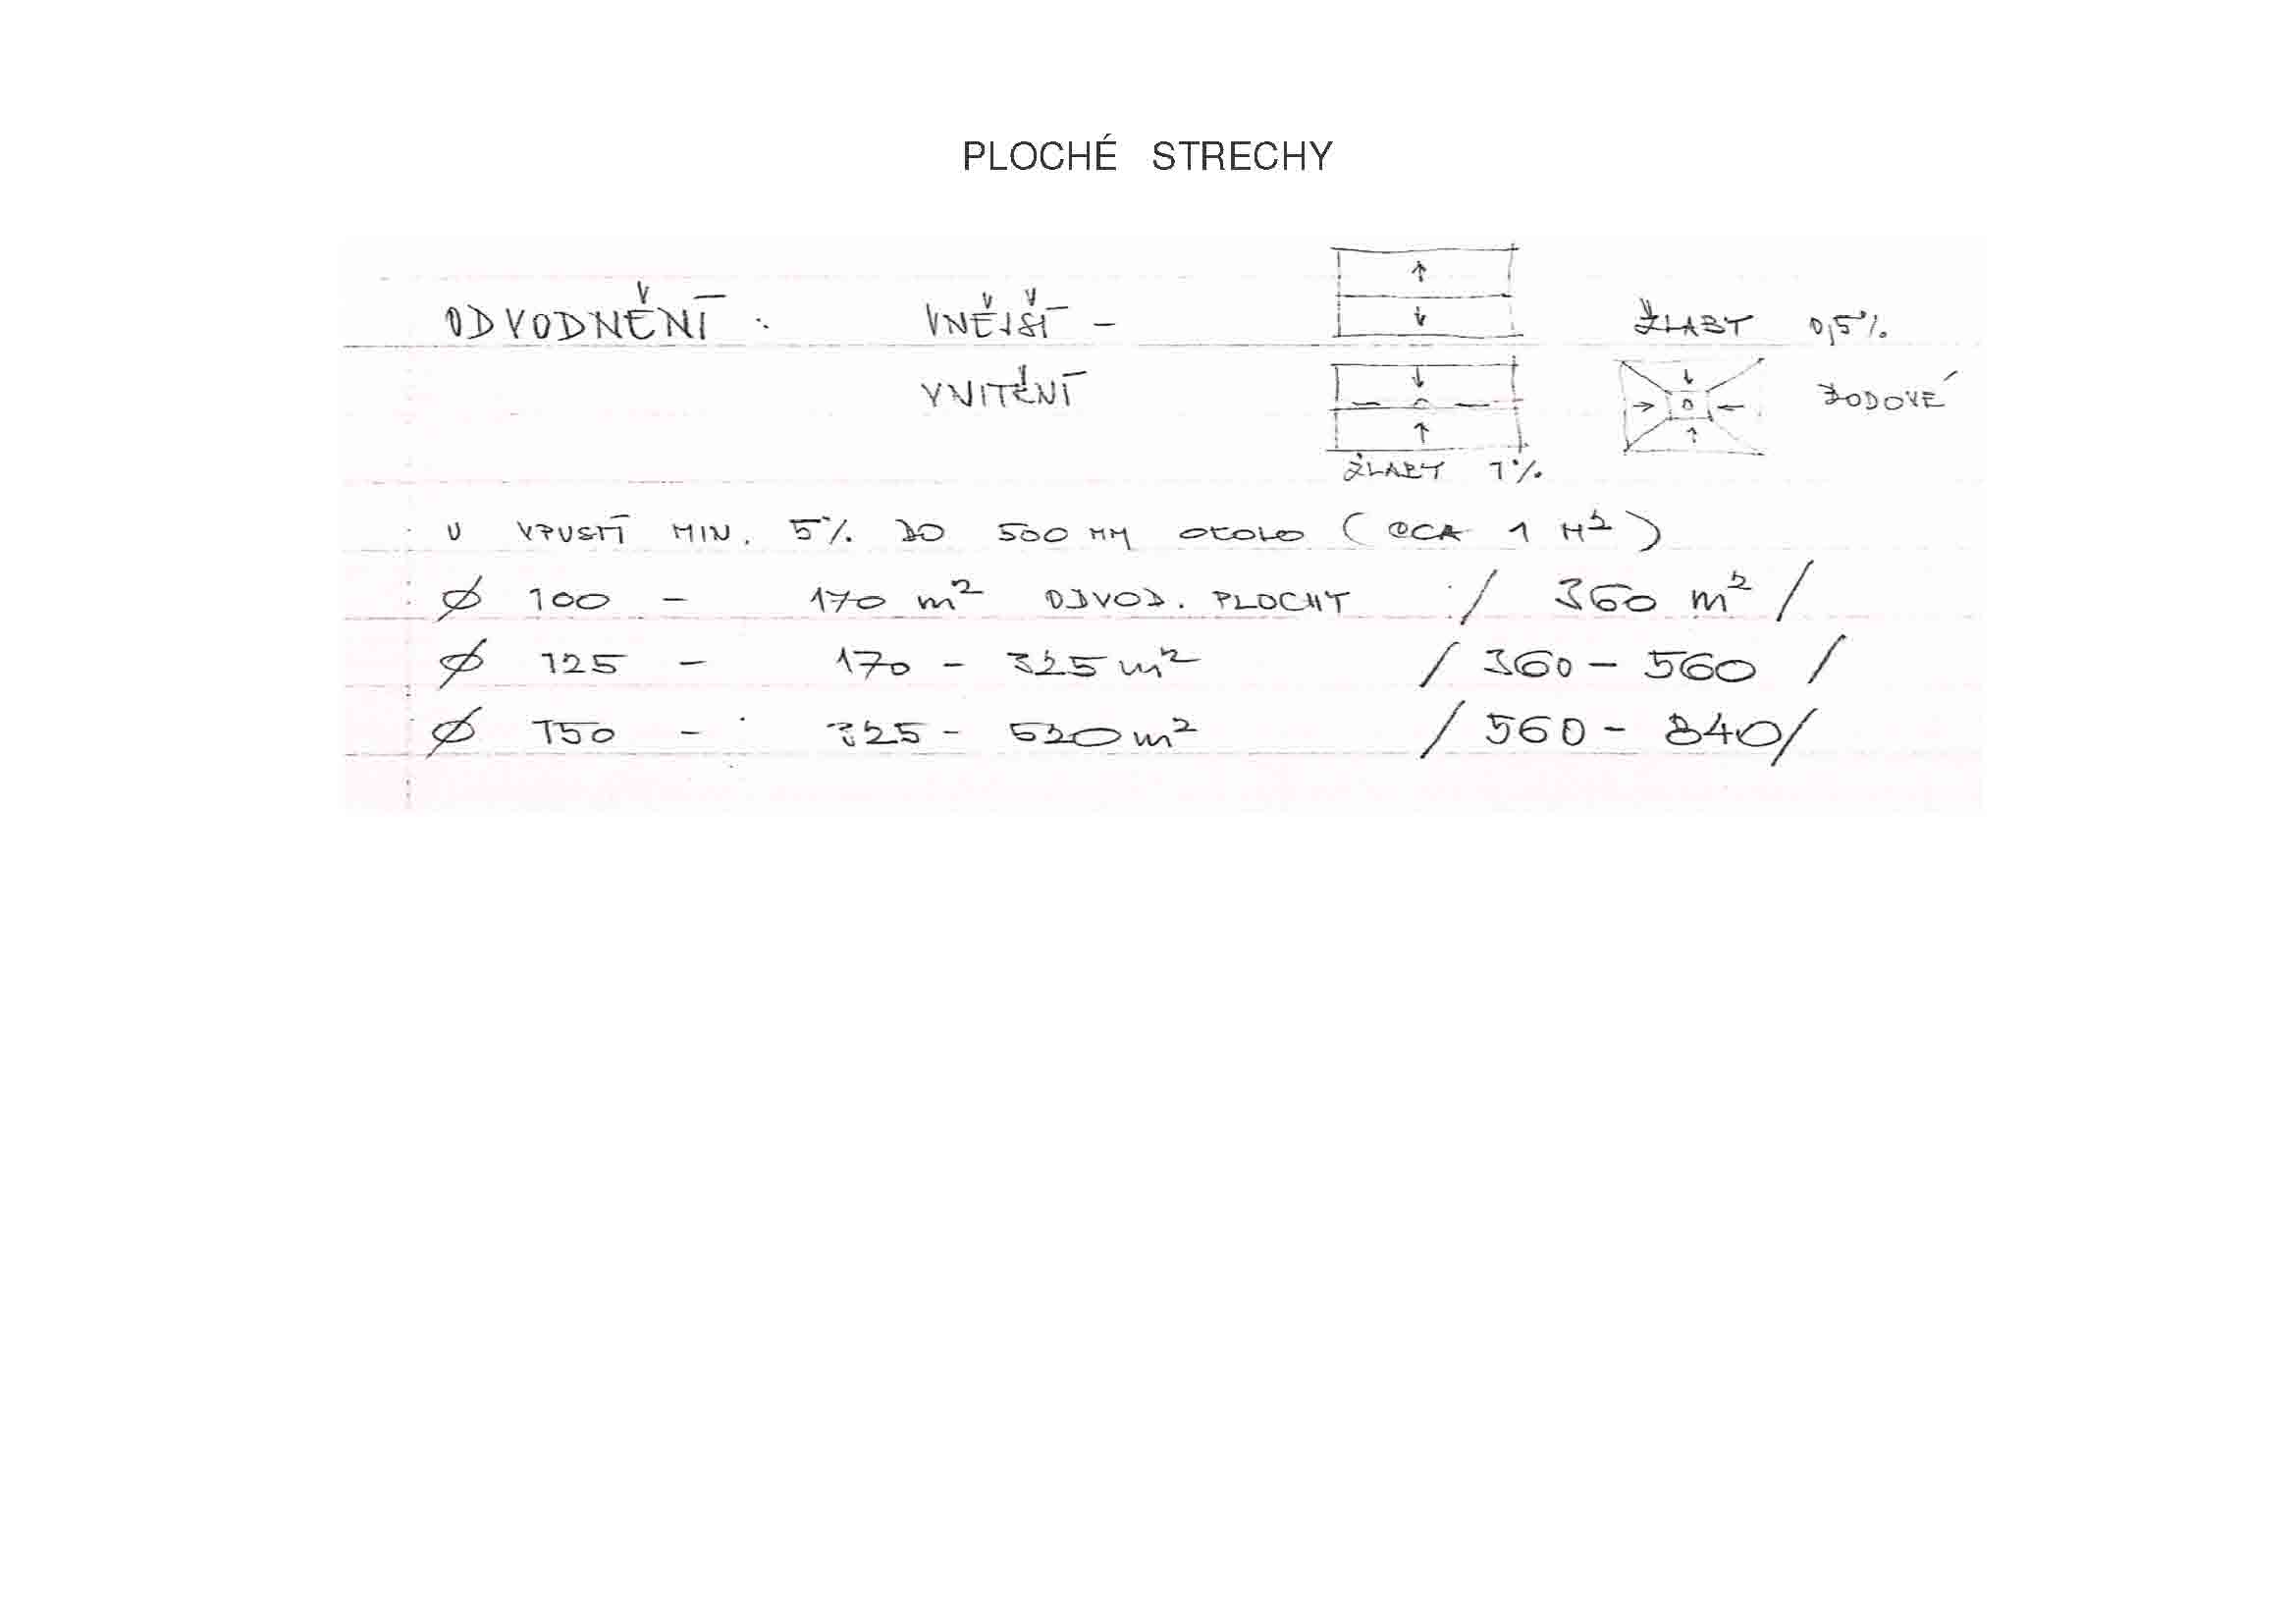 PLOCHÉ STRECHY
ODVODNĚNÍ : VNĚJŠÍ - ŽLABY 0,5%
VNITŘNÍ BODOVÉ
ŽLABY 1%
U VPUSTÍ MIN. 5% DO 500 MM OKOLO ( CCA 1 M² )
Ø 100 - 170 m² ODVOD. PLOCHY / 360 m² /
Ø 125 - 170 - 325 m² / 360 - 560 /
Ø 150 - 325 - 520 m² / 560 - 840 /